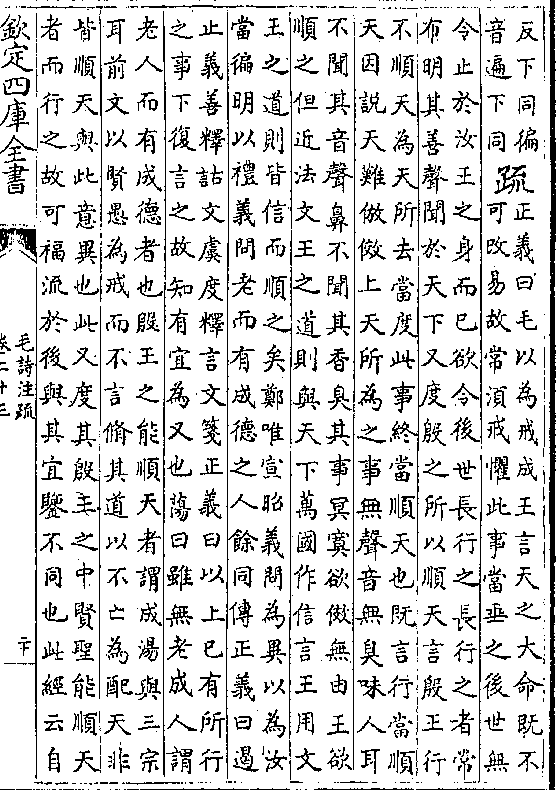 反下同徧
音遍下同疏正義曰毛以為戒成王言天之大命既不
可改易故常須戒懼此事當垂之後世無
令止於汝王之身而已欲令後世長行之長行之者常
布明其善聲聞於天下又度殷之所以順天言殷王行
不順天為天所去當度此事終當順天也既言行當順
天因説天難倣傚上天所為之事無聲音無臭味人耳
不聞其音聲鼻不聞其香臭其事冥寞欲倣無由王欲
順之但近法文王之道則與天下萬國作信言王用文
王之道則皆信而順之矣鄭唯宣昭義問為異以為汝
當徧明以禮義問老而有成德之人餘同傳正義曰遏
止義善釋詁文虞度釋言文箋正義曰以上已有所行
之事下復言之故知有宜為又也蕩曰雖無老成人謂
老人而有成德者也殷王之能順天者謂成湯與三宗
耳前文以賢愚為戒而不言脩其道以不亡為配天非
皆順天與此意異也此又度其殷王之中賢聖能順天
者而行之故可福流於後與其宜鑒不同也此經云自
欽定四庫全書
毛詩注疏
卷二十三
二下